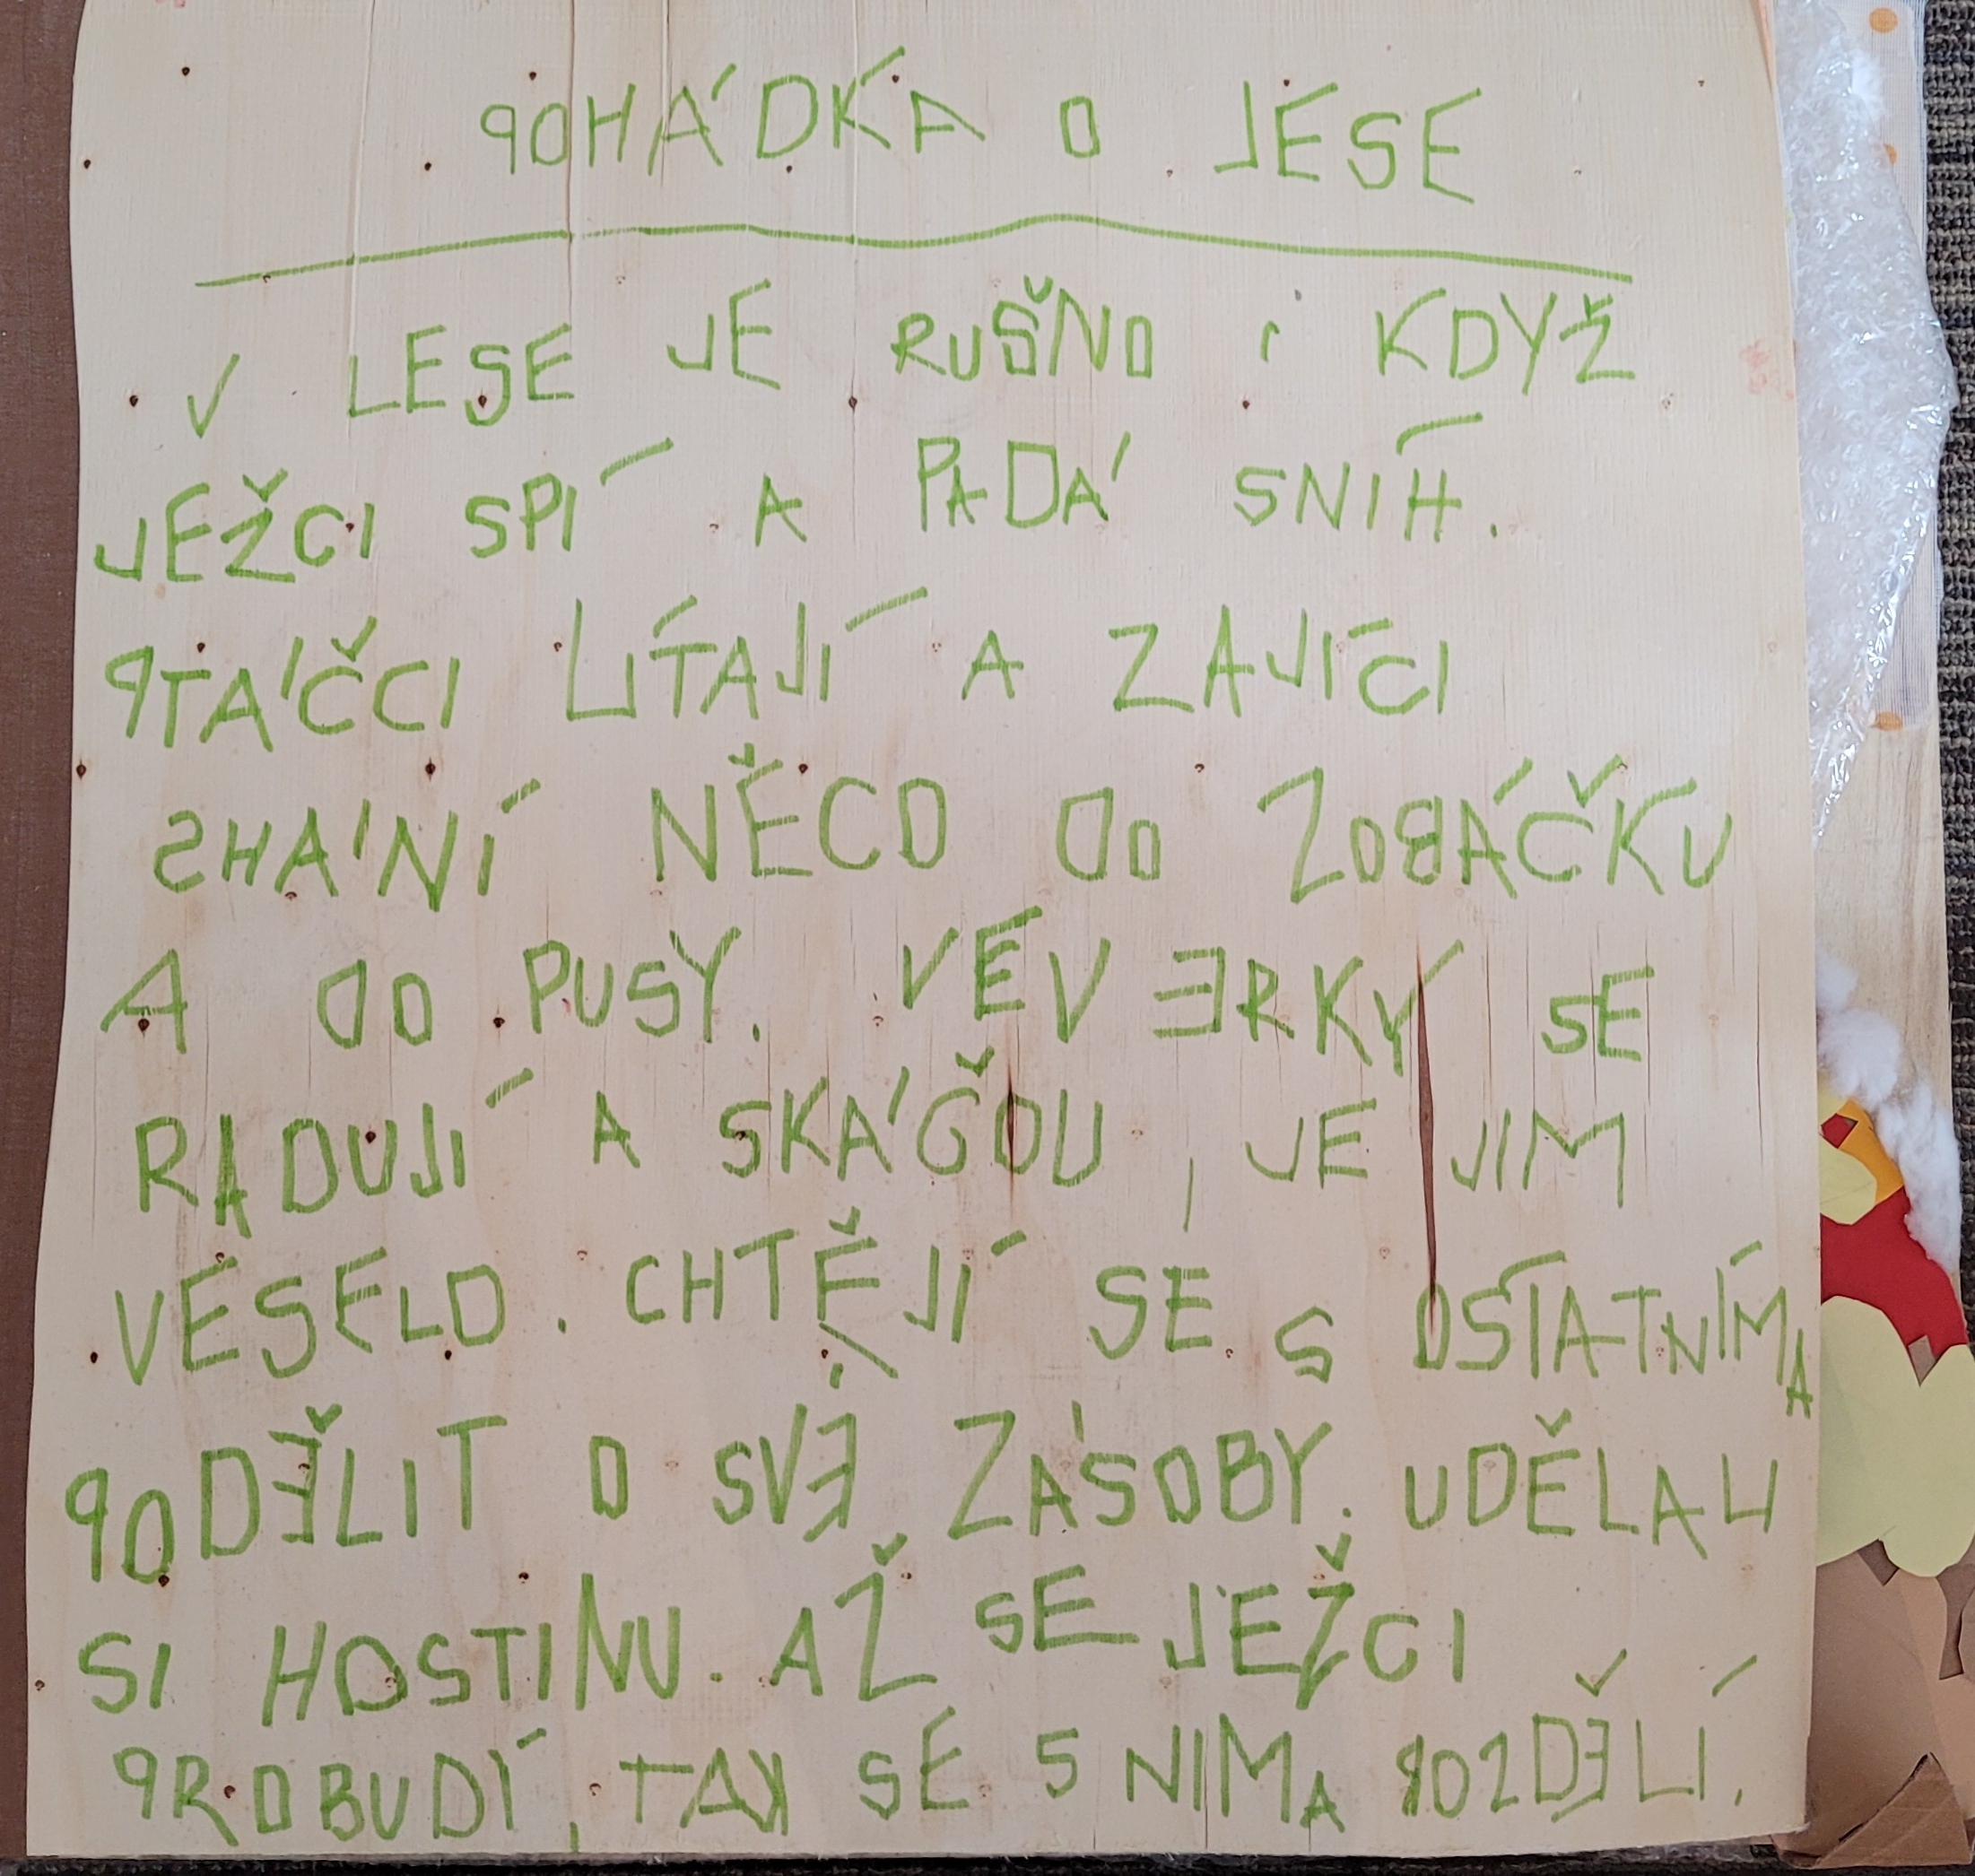 POHÁDKA O JESE
V LESE JE RUŠNO I KDYŽ
JEŽCI SPÍ A PADÁ SNÍH.
PTÁČCI LÍTAJÍ A ZAJÍCI
SHÁNÍ NĚCO DO ZOBÁČKU
A DO PUSY. VEVERKY SE
RADUJÍ A SKÁČOU, JE JIM
VESELO. CHTĚJÍ SE S OSTATNÍMA
PODĚLIT O SVE ZÁSOBY. UDĚLALI
SI HOSTINU. AŽ SE JEŽCI
PROBUDÍ, TAK SE S NIMA ROZDĚLÍ.